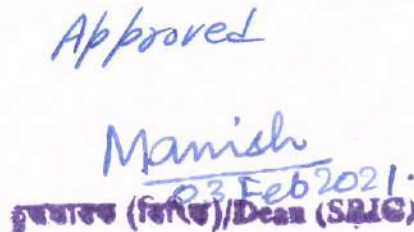 Approved
Manish
03 Feb 2021.
(सिरिक)/Dean (SRIC)